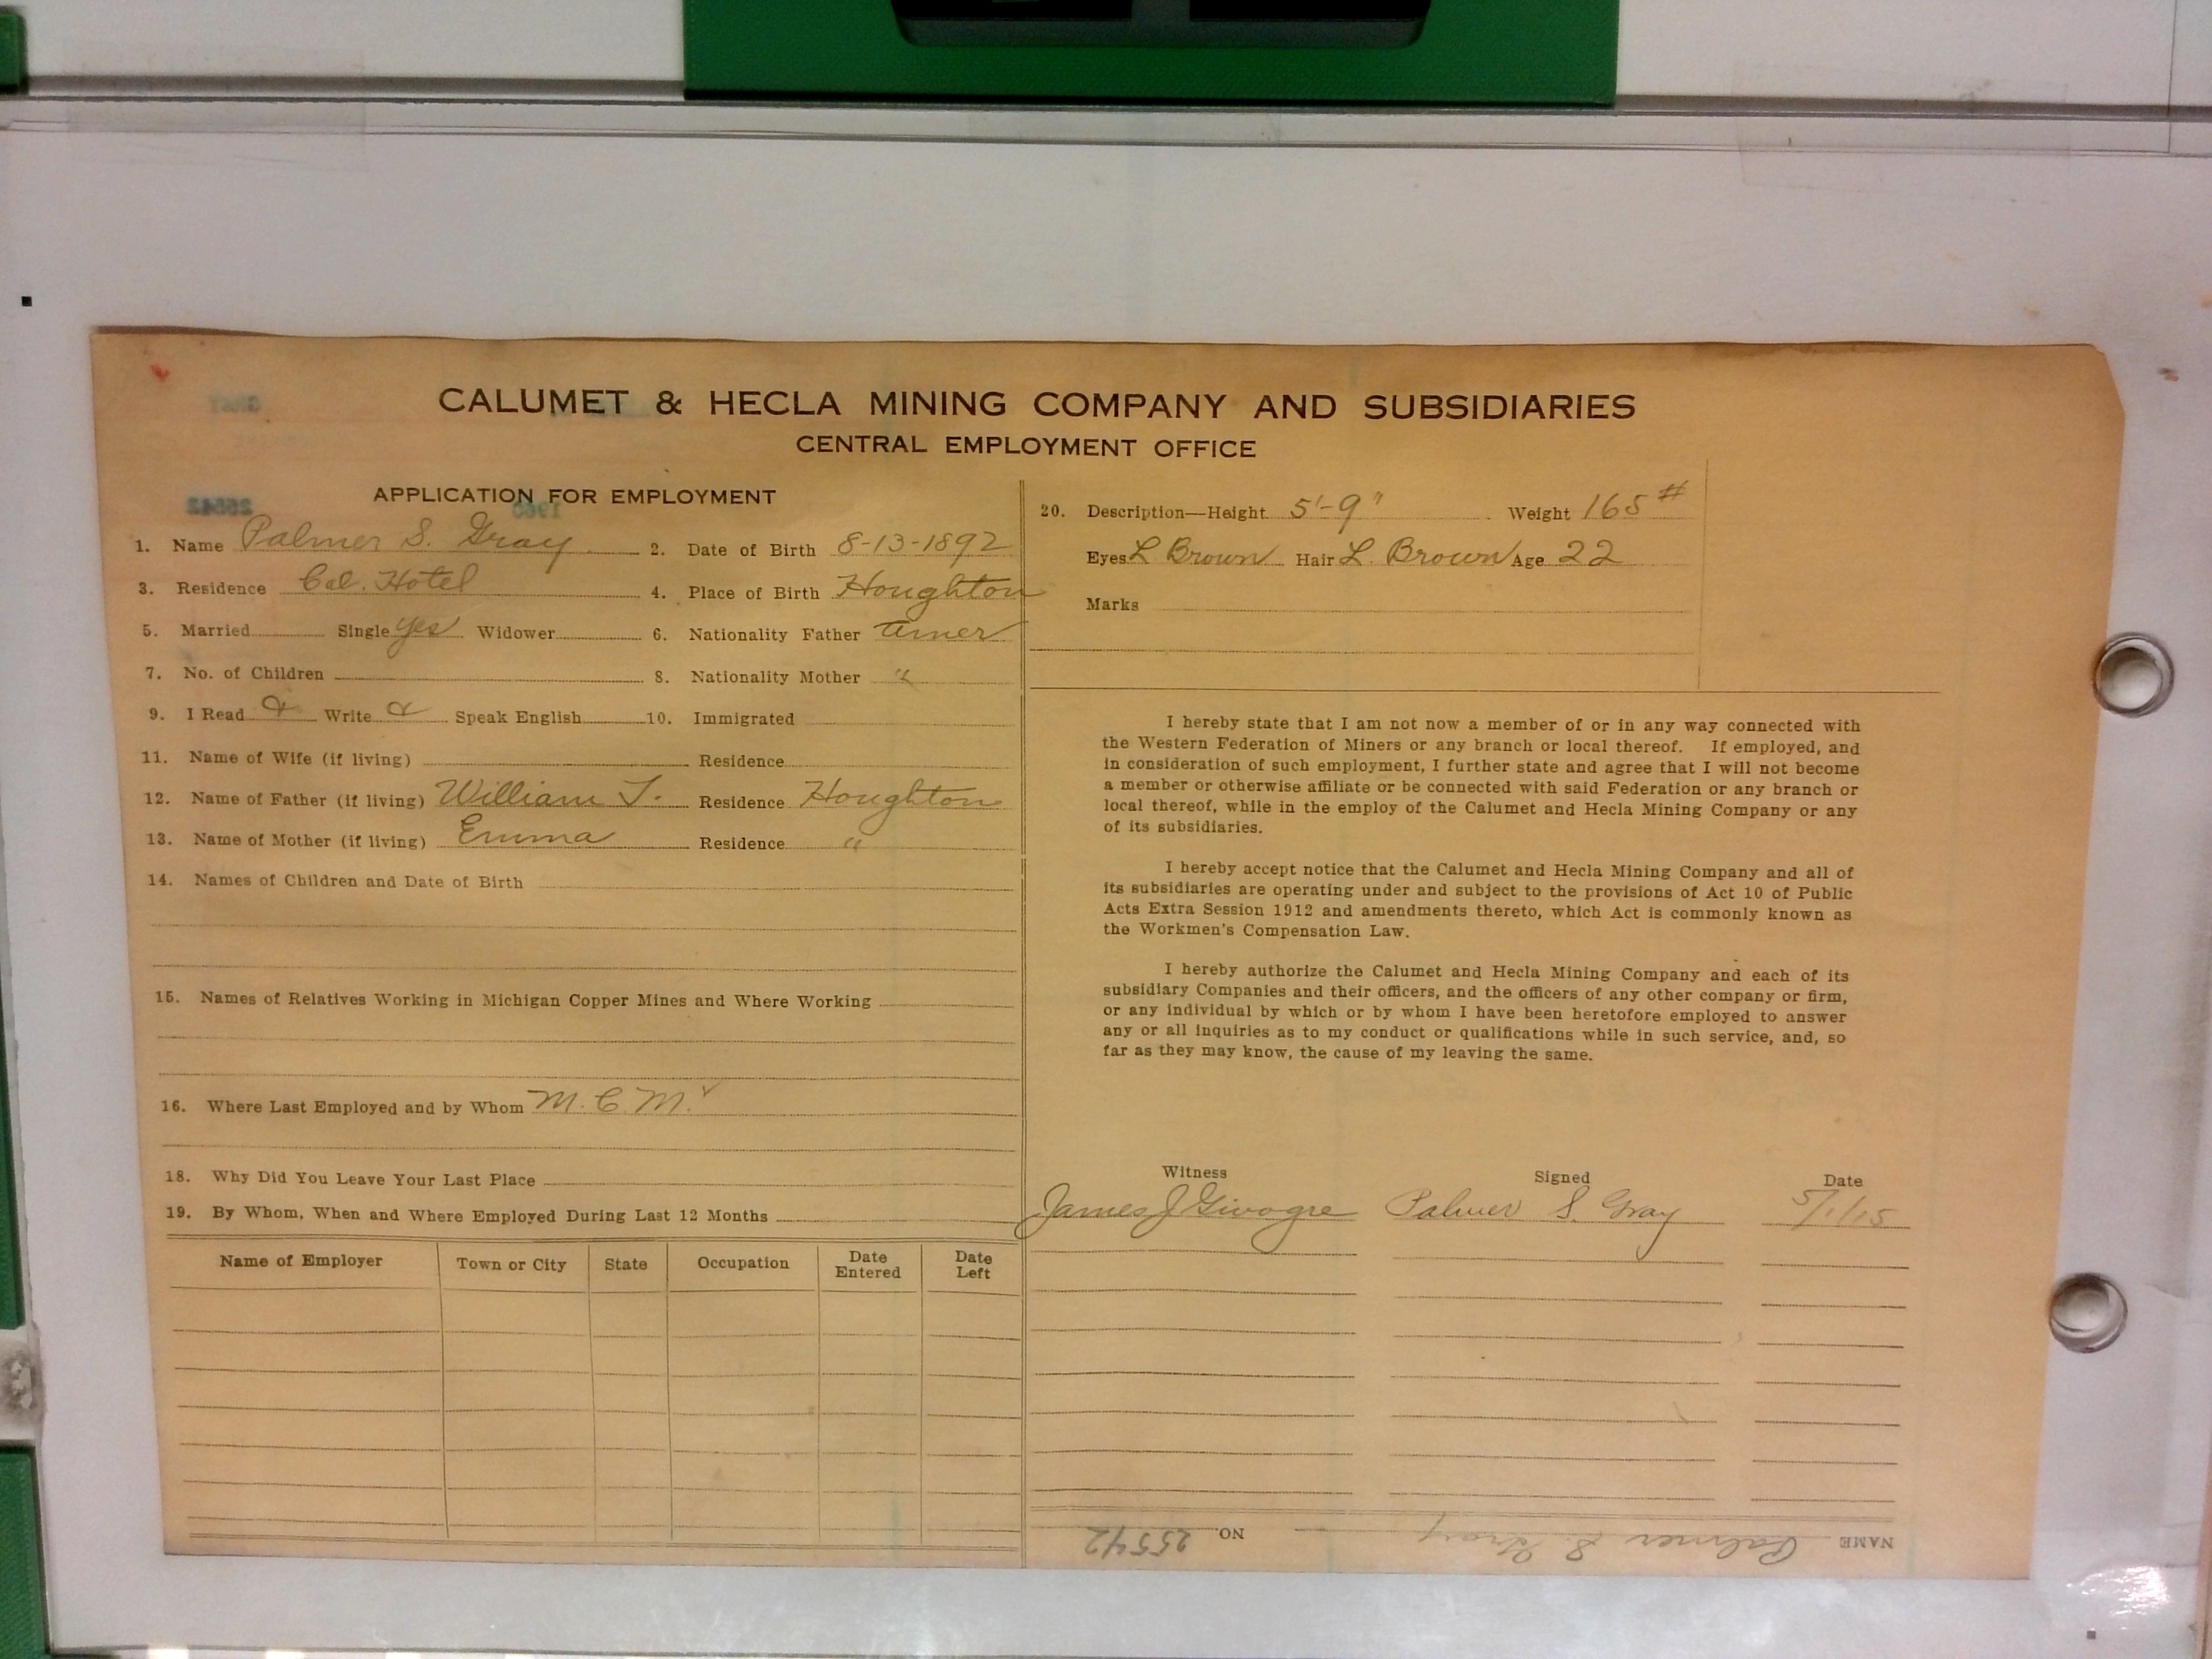 CALUMET & HECLA MINING COMPANY AND SUBSIDIARIES
CENTRAL EMPLOYMENT OFFICE
APPLICATION FOR EMPLOYMENT
1. Name Palmer S. Gray 2. Date of Birth 8-13-1892
3. Residence Cal. Hotel 4. Place of Birth Houghton
5. Married Single yes Widower 6. Nationality Father Amer
7. No. of Children 8. Nationality Mother "
9. I Read & Write & Speak English 10. Immigrated
11. Name of Wife (if living) Residence
12. Name of Father (if living) William J. Residence Houghton
13. Name of Mother (if living) Emma Residence "
14. Names of Children and Date of Birth
15. Names of Relatives Working in Michigan Copper Mines and Where Working
16. Where Last Employed and by Whom M. C. M.
18. Why Did You Leave Your Last Place
19. By Whom, When and Where Employed During Last 12 Months
Name of Employer Town or City State Occupation Date Entered Date Left
20. Description—Height 5'-9" Weight 165 #
Eyes L Brown Hair L. Brown Age 22
Marks
I hereby state that I am not now a member of or in any way connected with
the Western Federation of Miners or any branch or local thereof. If employed, and
in consideration of such employment, I further state and agree that I will not become
a member or otherwise affiliate or be connected with said Federation or any branch or
local thereof, while in the employ of the Calumet and Hecla Mining Company or any
of its subsidiaries.
I hereby accept notice that the Calumet and Hecla Mining Company and all of
its subsidiaries are operating under and subject to the provisions of Act 10 of Public
Acts Extra Session 1912 and amendments thereto, which Act is commonly known as
the Workmen's Compensation Law.
I hereby authorize the Calumet and Hecla Mining Company and each of its
subsidiary Companies and their officers, and the officers of any other company or firm,
or any individual by which or by whom I have been heretofore employed to answer
any or all inquiries as to my conduct or qualifications while in such service, and, so
far as they may know, the cause of my leaving the same.
Witness Signed Date
James J Givogre Palmer S. Gray 5/1/15
NAME Palmer S. Gray NO. 25542